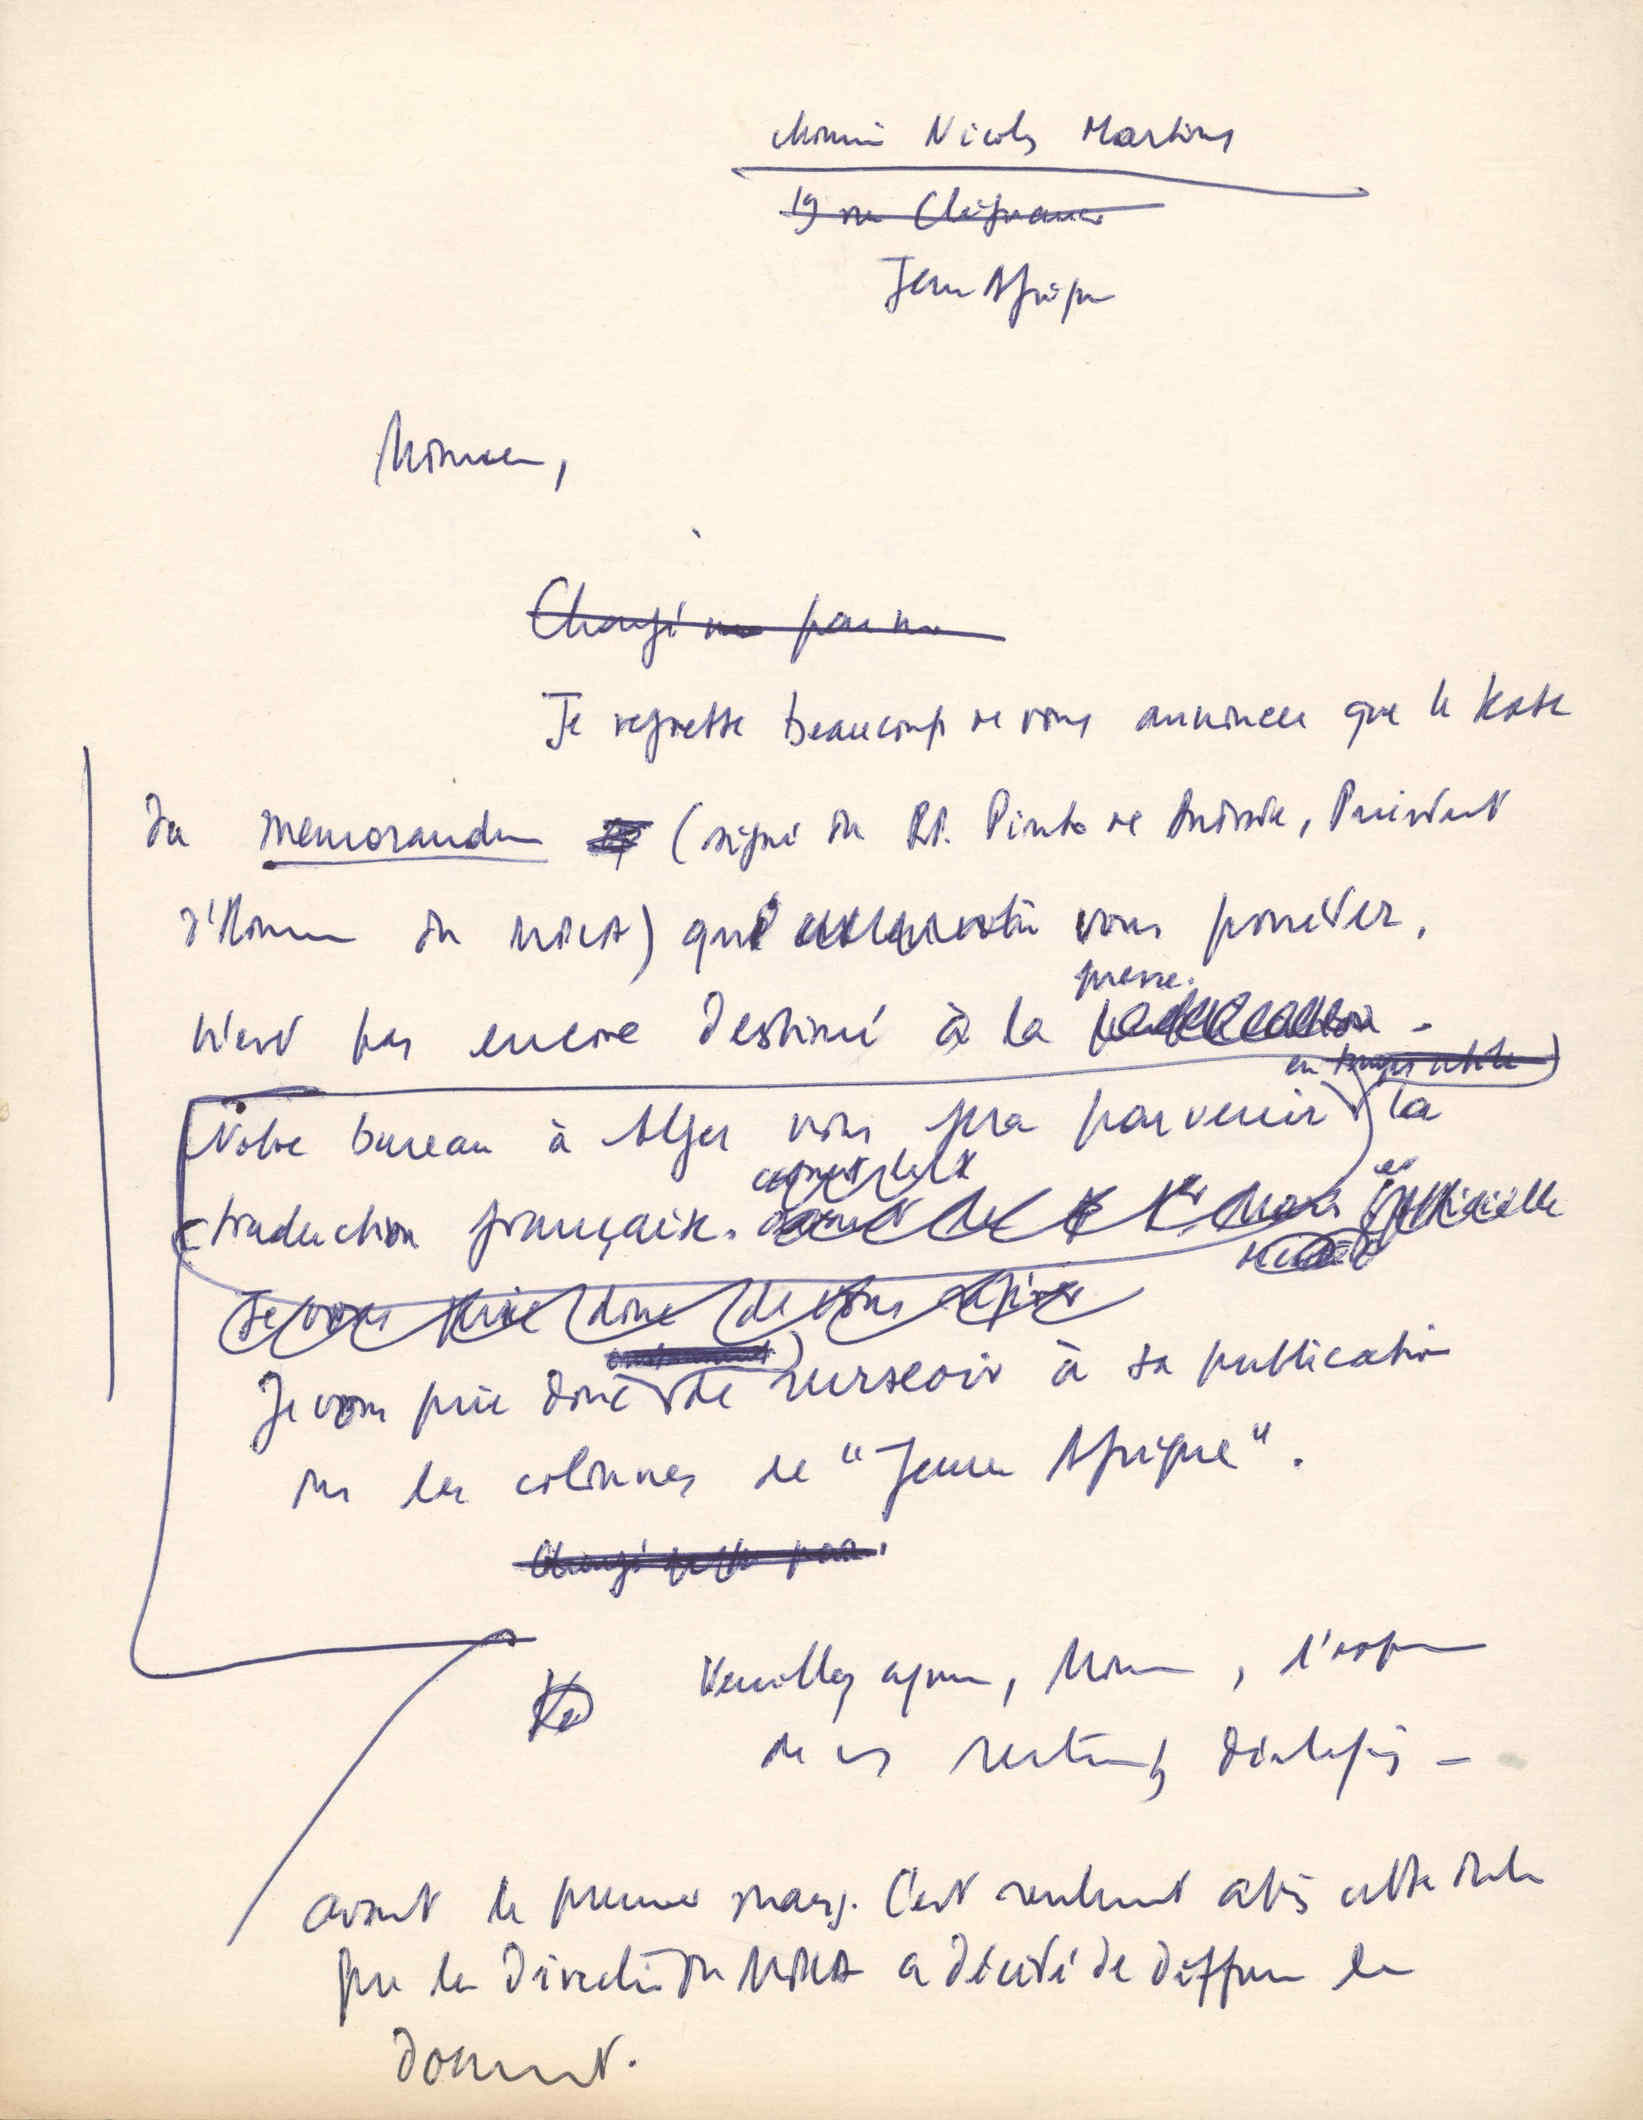 Monsieur Nicolas Martins
19 rue
Jeune Afrique
Monsieur,
Chargé par
Je regrette beaucoup de vous annoncer que le texte
du memorandum (signé du R.P. Pinto de Andrade, Président
d'Honneur du MPLA) que vous possédez,
n'est pas encore destiné à la
presse.
en temps utile
Notre bureau à Alger vous fera parvenir la
traduction française. avant le 1er Mars officielle
Je vous prie donc de vous
Je vous prie donc de surseoir à sa publication
ds les colonnes de "Jeune Afrique".
Veuillez agréer, Monsieur, l'expression
de mes sentiments distingués -
avant le premier mars. C'est seulement après cette date
que la Direction du MPLA a décidé de diffuser le
document.